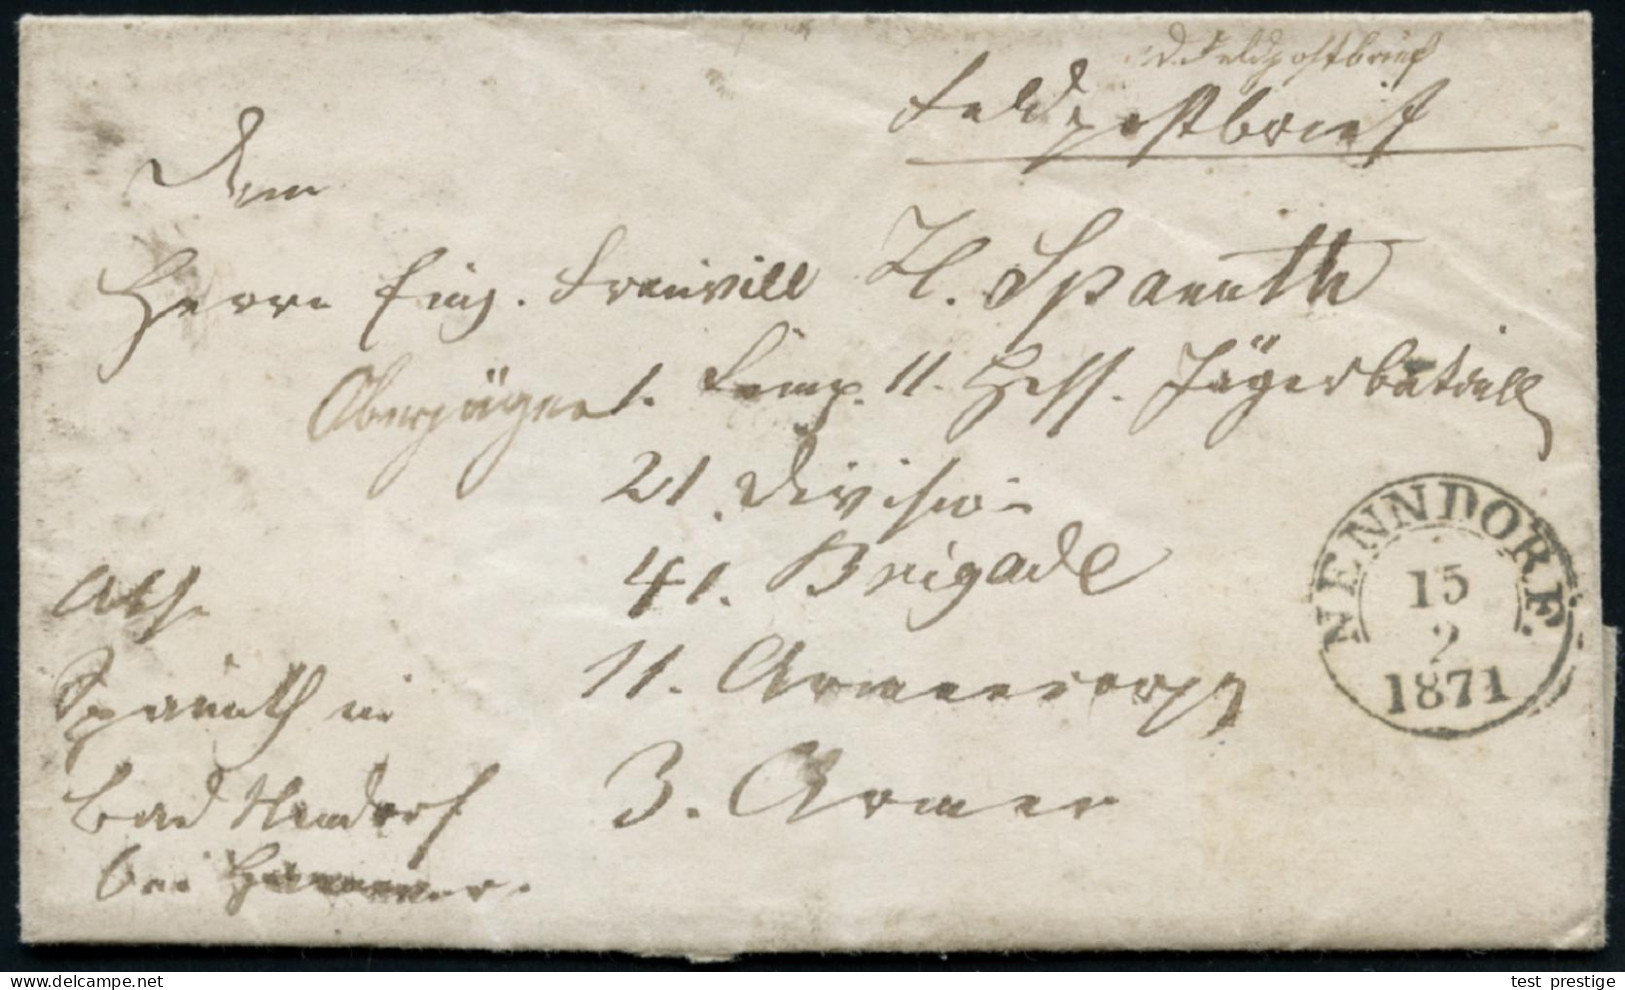 d. Feldpostbrief
Feldpostbrief
Dem
Herrn Einj. Freiwill H. Spanuth
Oberjäger 1. Comp. 11. Hess. Jägerbataill
21. Division
41. Brigade
11. Armeecorps
3. Armee
NENNDORF.
15
2
1871
Abs.
Spanuth in
Bad Nendorf
bei Hannover.
test_prestige